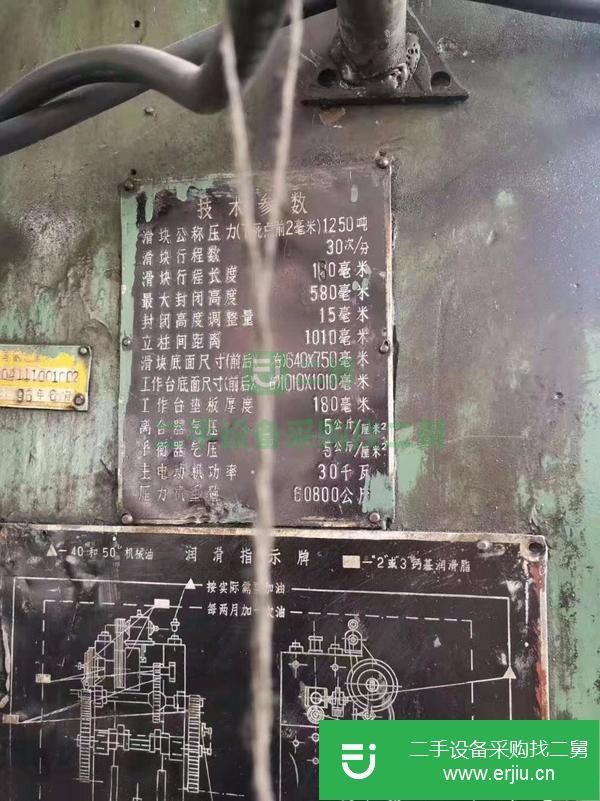 技术参数
滑块公称压力(下死点前2毫米)1250吨
滑块行程数 30次/分
滑块行程长度 毫米
最大封闭高度 580毫米
封闭高度调整量 15毫米
立柱间距离 1010毫米
滑块底面尺寸(前后 右)640X750毫米
工作台底面尺寸(前后 右)1010X1010毫米
工作台垫板厚度 180毫米
离合器气压 5公斤/厘米²
平衡器气压 5公斤/厘米²
主电动机功率 30千瓦
压力机重量 60800公斤
95年6月
—40和50#机械油 润滑指示牌 —2#或3#钙基润滑脂
按实际需要加油
每两月加一次油
二手设备采购找二舅
二手设备采购找二舅
www.erjiu.cn